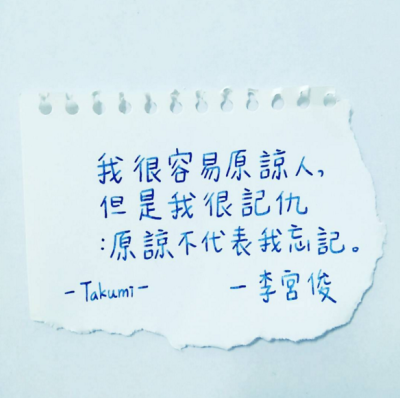 我很容易原諒人,
但是我很記仇
:原諒不代表我忘記。
-Takumi-
-李宮俊